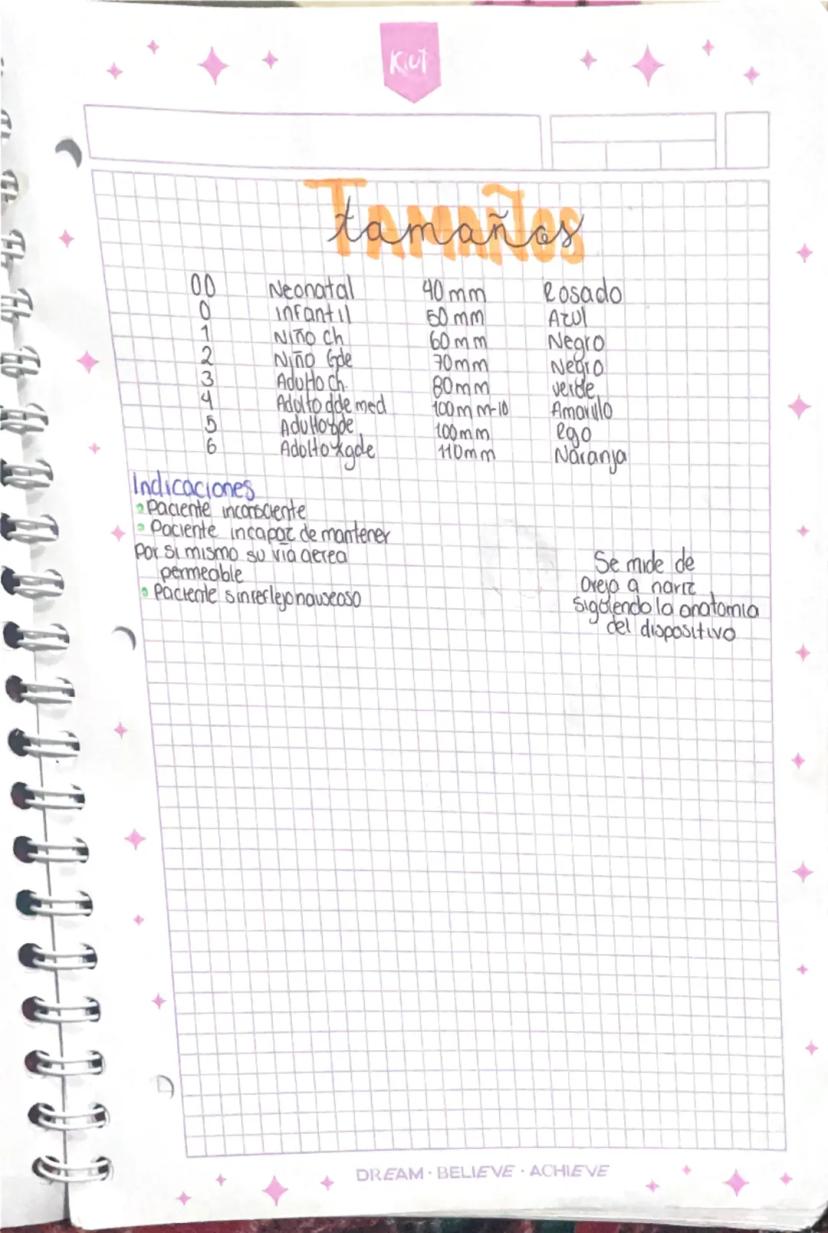 Kiut
Tamaños
tamaños
00 Neonatal 40mm Rosado
0 infantil 50mm Azul
1 Niño Ch 60mm Negro
2 Niño Gde 70mm Negro
3 Adulto ch. 80mm verde
4 Adulto gde med 100mm-10 Amarillo
5 Adulto gde 100mm
6 Adulto xgde 110mm Naranja
Indicaciones
Paciente inconsciente
Paciente incapaz de mantener
Por si mismo su vía aerea
permeable
Paciente sin reflejo nauseoso
Se mide de
Oreja a nariz
siguiendo la anatomia
del dispositivo
DREAM · BELIEVE · ACHIEVE